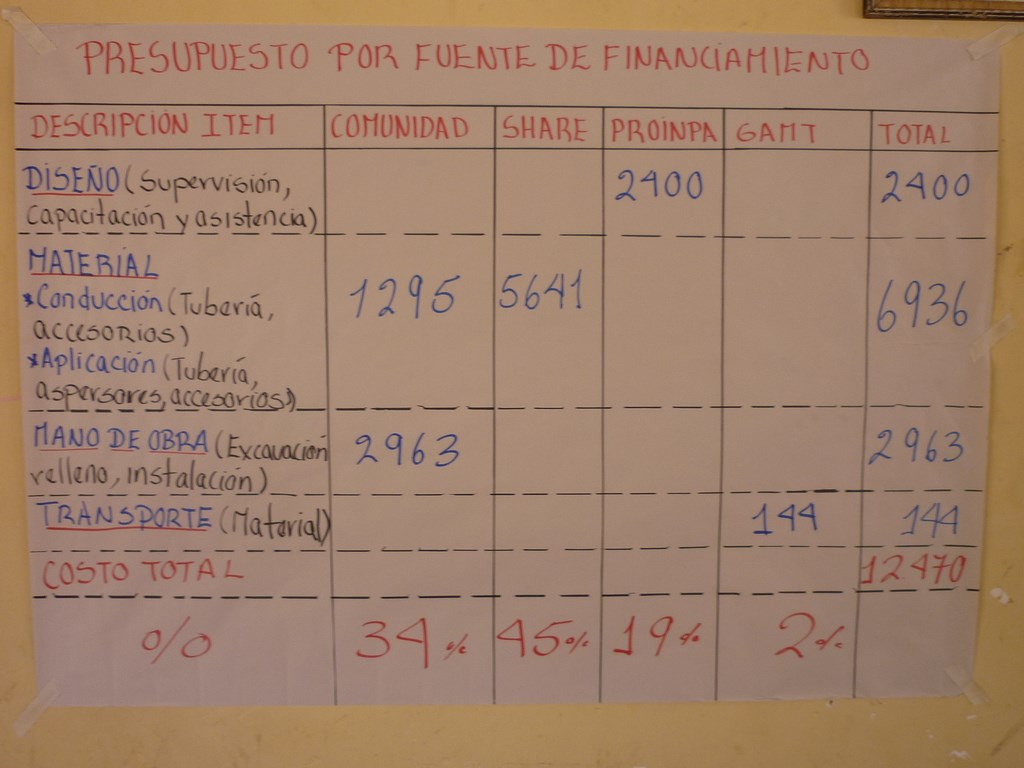 PRESUPUESTO POR FUENTE DE FINANCIAMIENTO
DESCRIPCIÓN ITEM COMUNIDAD SHARE PROINPA GAMT TOTAL
DISEÑO (Supervisión, 2400 2400
Capacitación y asistencia)
MATERIAL
*Conducción (Tubería, 1295 5641 6936
accesorios)
*Aplicación (Tubería,
aspersores, accesorios)
MANO DE OBRA (Excavación 2963 2963
relleno, instalación)
TRANSPORTE (Material) 144 144
COSTO TOTAL 12.470
% 34% 45% 19% 2%